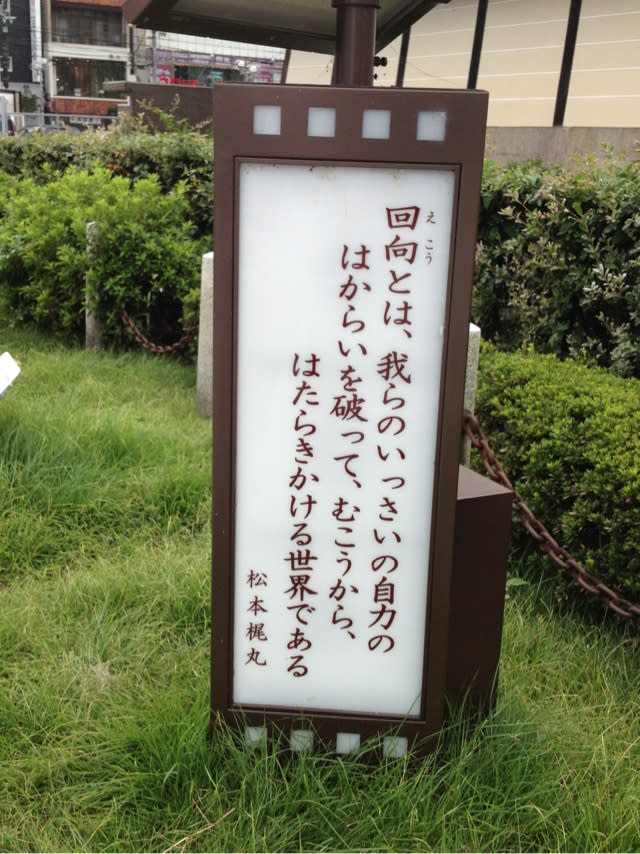 回向とは、我らのいっさいの自力の
えこう
はからいを破って、むこうから、
はたらきかける世界である
松本梶丸